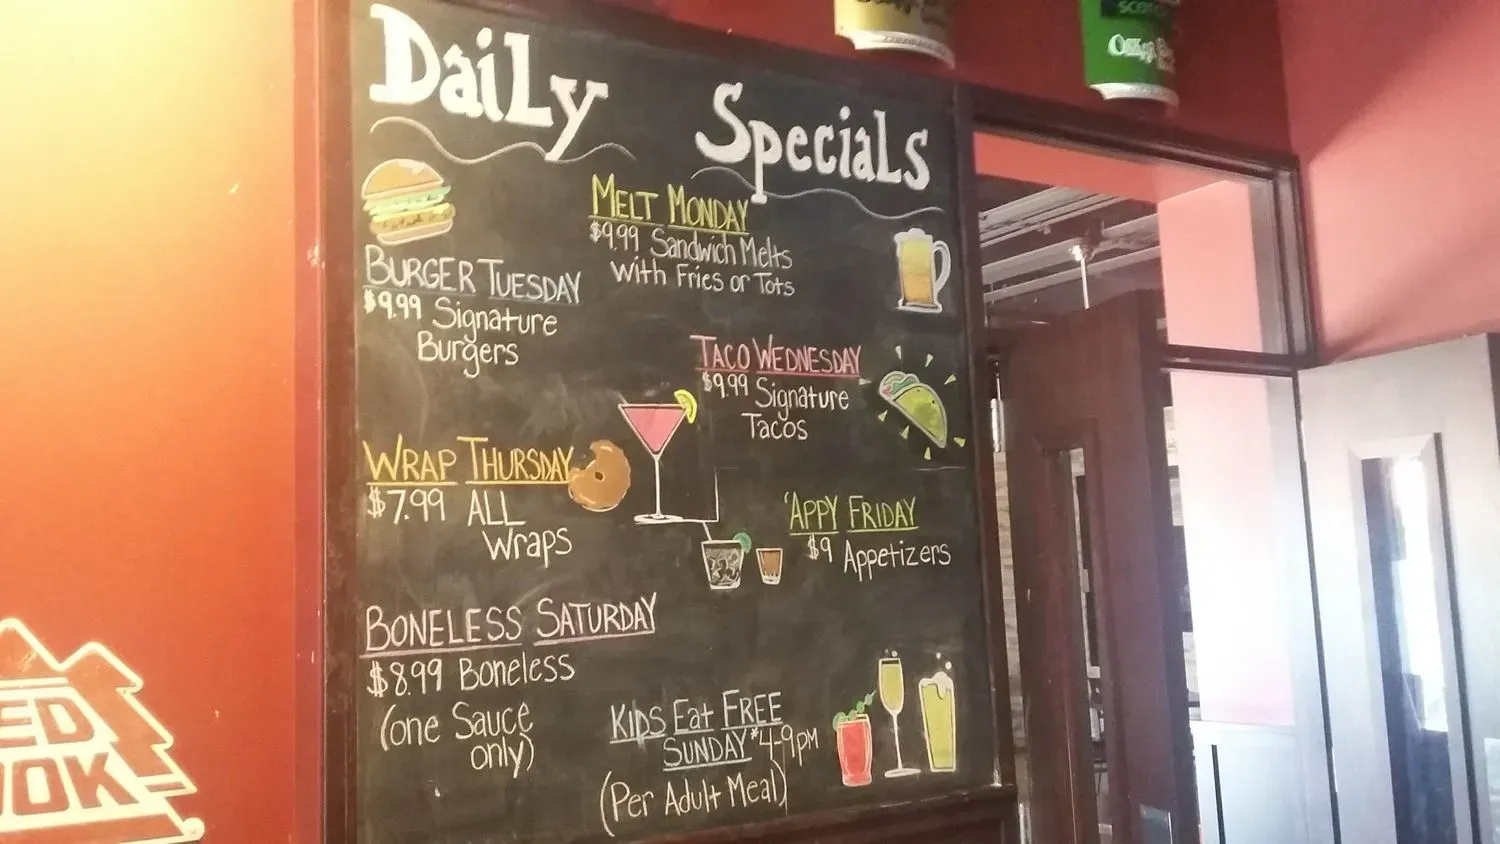 Daily Specials
MELT MONDAY
$9.99 Sandwich Melts
with Fries or Tots
BURGER TUESDAY
$9.99 Signature
Burgers
TACO WEDNESDAY
$9.99 Signature
Tacos
WRAP THURSDAY
$7.99 ALL
Wraps
'APPY FRIDAY
$9 Appetizers
BONELESS SATURDAY
$8.99 Boneless
(one Sauce
only)
KIDS Eat FREE
SUNDAY *4-9PM
(Per Adult Meal)